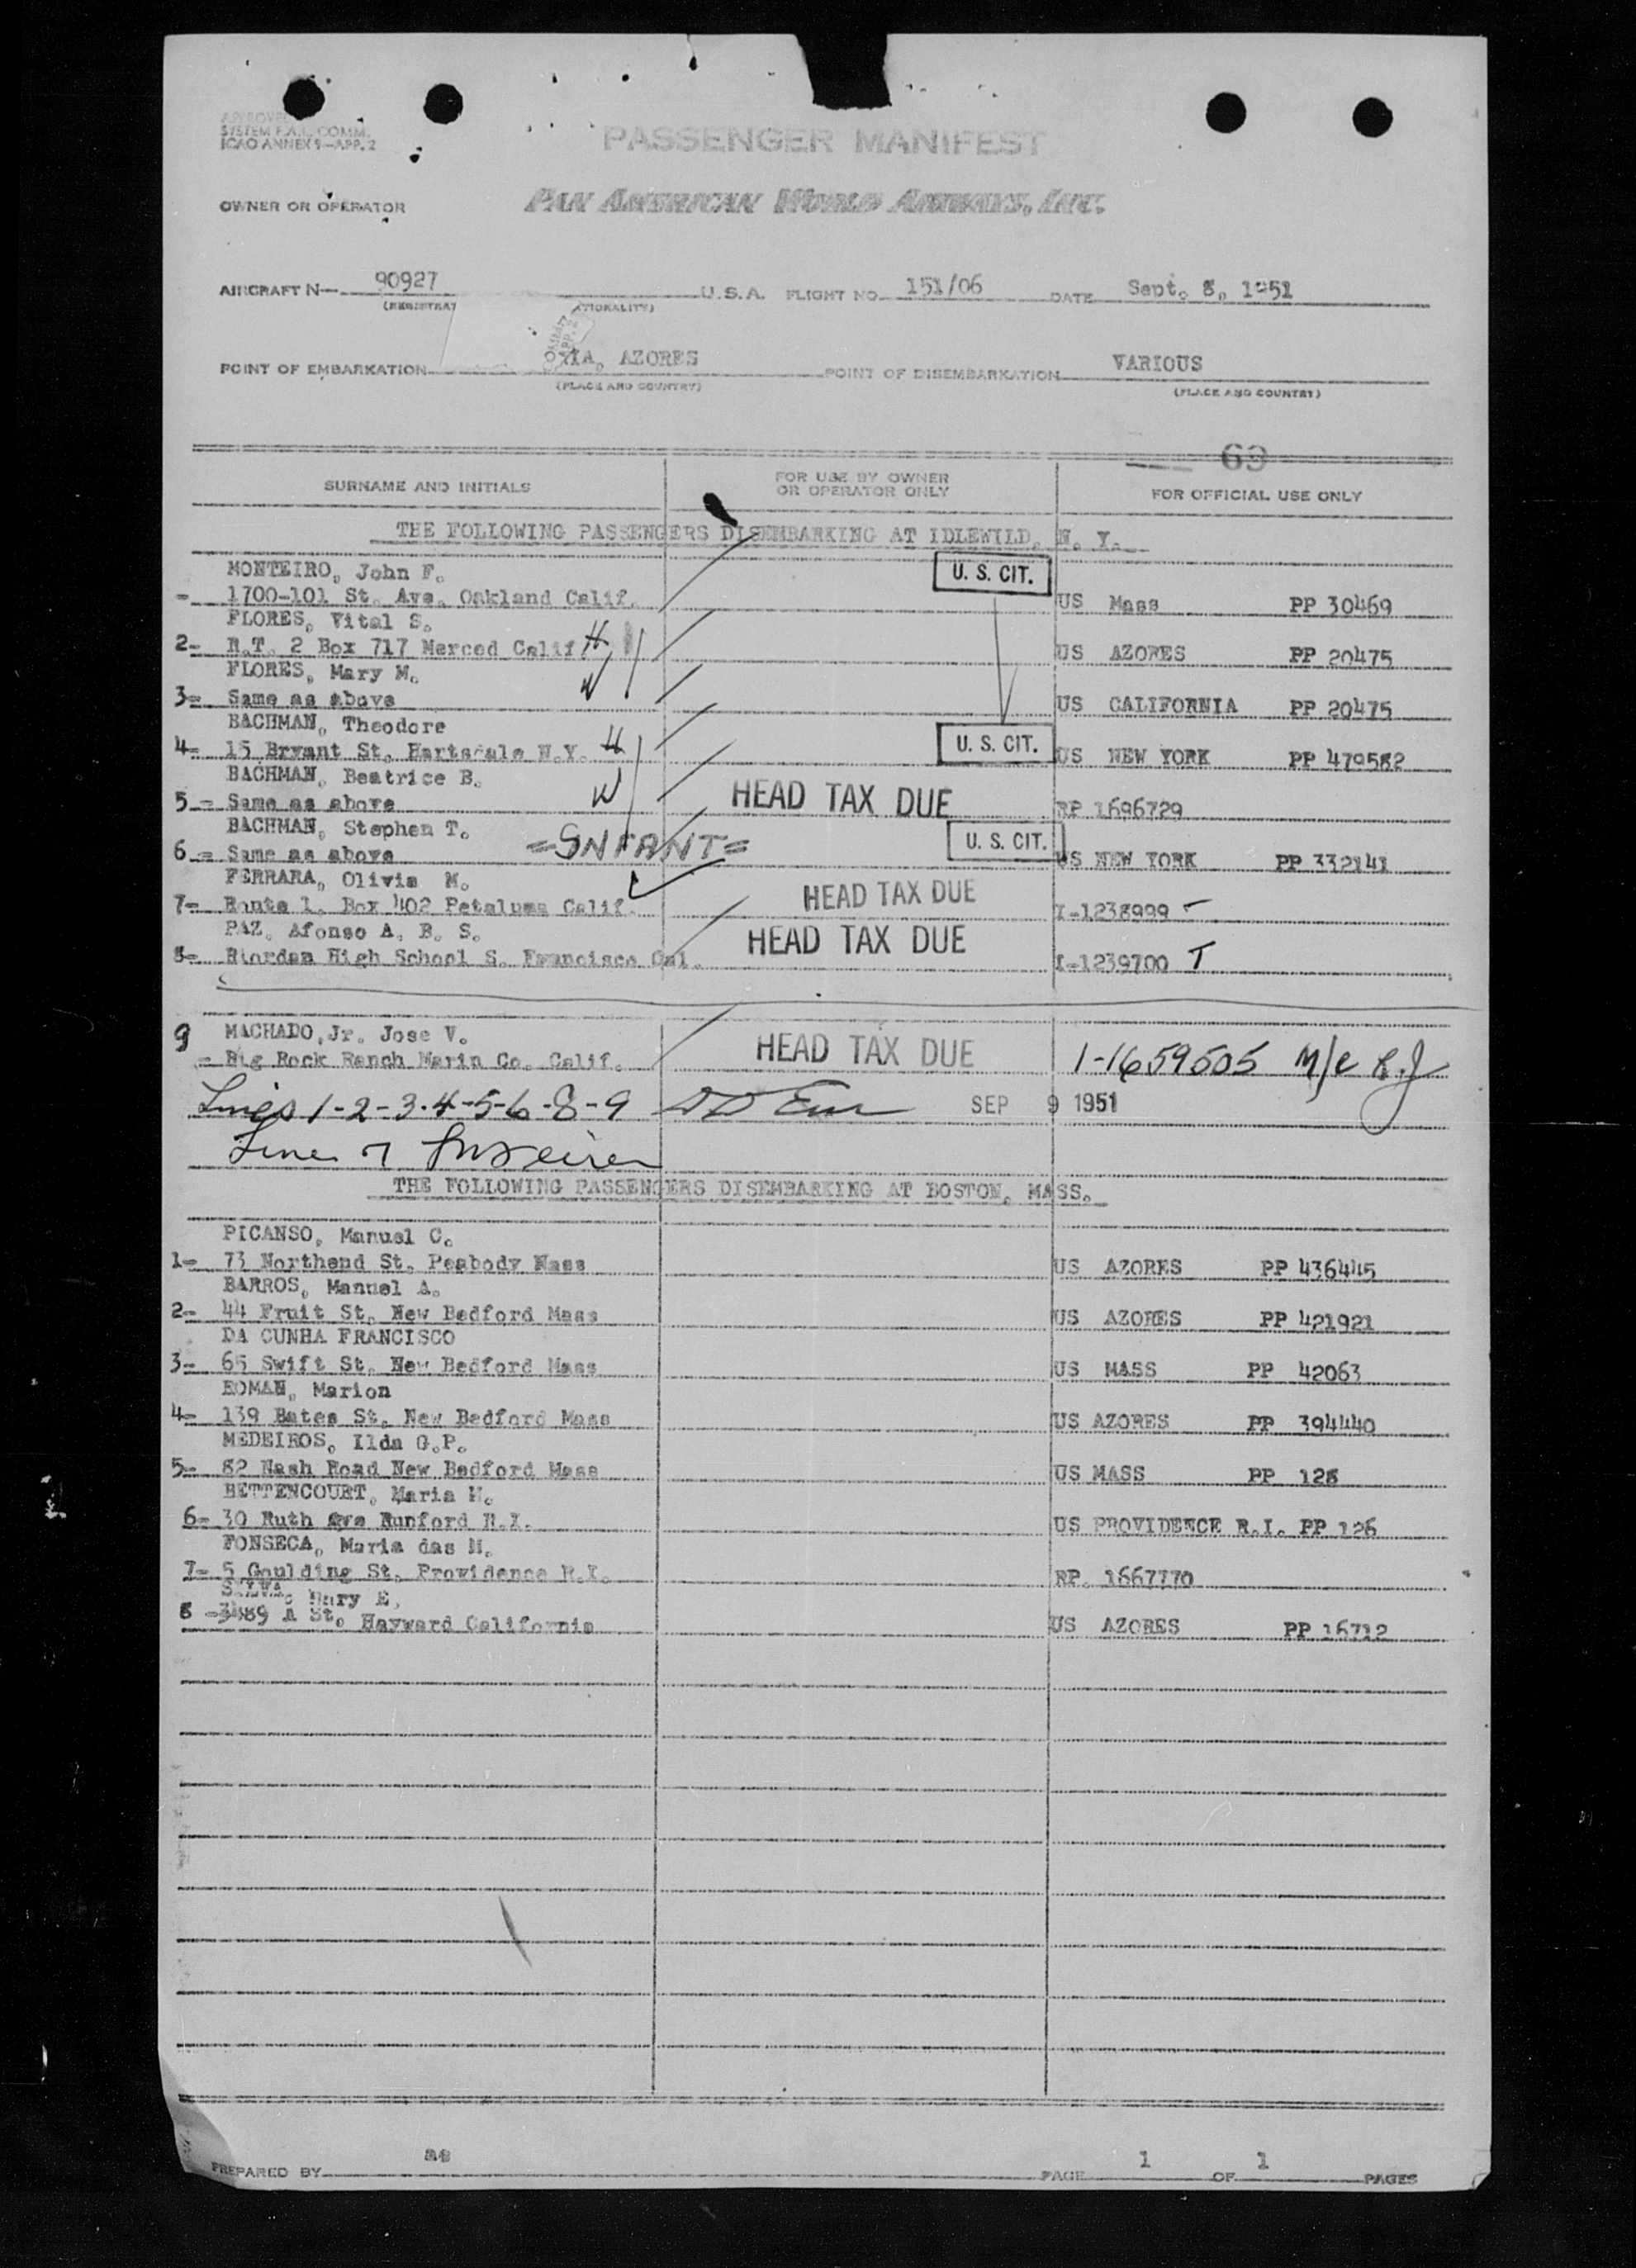 APPROVED
SYSTEM F.A.L. COMM.
ICAO ANNEX 9-APP. 2
PASSENGER MANIFEST
OWNER OR OPERATOR PAN AMERICAN WORLD AIRWAYS, INC.
AIRCRAFT N— 90927 U.S.A. FLIGHT NO. 151/06 DATE Sept. 8, 1951
POINT OF EMBARKATION AZORES POINT OF DISEMBARKATION VARIOUS
(PLACE AND COUNTRY) (PLACE AND COUNTRY)
69
SURNAME AND INITIALS FOR USE BY OWNER OR OPERATOR ONLY FOR OFFICIAL USE ONLY
THE FOLLOWING PASSENGERS DISEMBARKING AT IDLEWILD, N. Y.
MONTEIRO, John F. U. S. CIT.
- 1700-101 St. Ave. Oakland Calif. US Mass PP 30469
FLORES, Vital S.
2- R.T. 2 Box 717 Merced Calif. H US AZORES PP 20475
FLORES, Mary M.
3- Same as above W US CALIFORNIA PP 20475
BACHMAN, Theodore
4- 15 Bryant St. Hartsdale N.Y. H U. S. CIT. US NEW YORK PP 479582
BACHMAN, Beatrice B.
5- Same as above W HEAD TAX DUE RP 1696729
BACHMAN, Stephen T.
6- Same as above =INFANT= U. S. CIT. US NEW YORK PP 332141
FERRARA, Olivia M.
7- Route 1. Box 402 Petaluma Calif. HEAD TAX DUE I-1238999
PAZ, Afonso A. B. S.
8- Riordan High School S. Francisco Cal. HEAD TAX DUE I-1239700 T
9 MACHADO, Jr. Jose V.
- Big Rock Ranch Marin Co. Calif. HEAD TAX DUE 1-1659505 M/C R.J
Lines 1-2-3-4-5-6-8-9 SEP 9 1951
Line 7
THE FOLLOWING PASSENGERS DISEMBARKING AT BOSTON, MASS.
PICANSO, Manuel C.
1- 73 Northend St. Peabody Mass US AZORES PP 436445
BARROS, Manuel A.
2- 44 Fruit St. New Bedford Mass US AZORES PP 421921
DA CUNHA FRANCISCO
3- 65 Swift St. New Bedford Mass US MASS PP 42063
ROMAN, Marion
4- 139 Bates St. New Bedford Mass US AZORES PP 394440
MEDEIROS, Ilda G.P.
5- 82 Nash Road New Bedford Mass US MASS PP 128
BETTENCOURT, Maria H.
6- 30 Ruth Ave Runford R.I. US PROVIDENCE R.I. PP 126
FONSECA, Maria das M.
7- 5 Goulding St. Providence R.I. RP. 1667770
SILVA, Mary E.
8 - A St. Hayward California US AZORES PP 16712
PREPARED BY PAGE 1 OF 1 PAGES